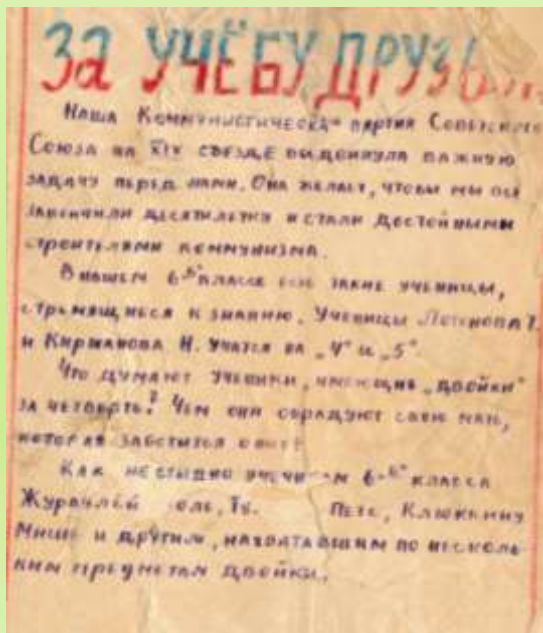 За учёбу, друзья
Наша Коммунистическая партия Советского
Союза на XIX съезде выдвинула важную
задачу перед нами. Она желает, чтобы мы все
закончили десятилетку и стали достойными
строителями коммунизма.
В нашем 6-"б" классе есть такие ученицы,
стремящиеся к знанию. Ученицы
и Кирианова Н. учатся на „4" и „5".
Что думают ученики, имеющие „двойки"
за четверть? Чем они обрадуют свою мать,
которая заботится о них?
Как не стыдно ученикам 6-"б" класса
Журавлёй Пете, Клюкину
Мише и другим, нахватавшим по несколь-
ким предметам двойки.